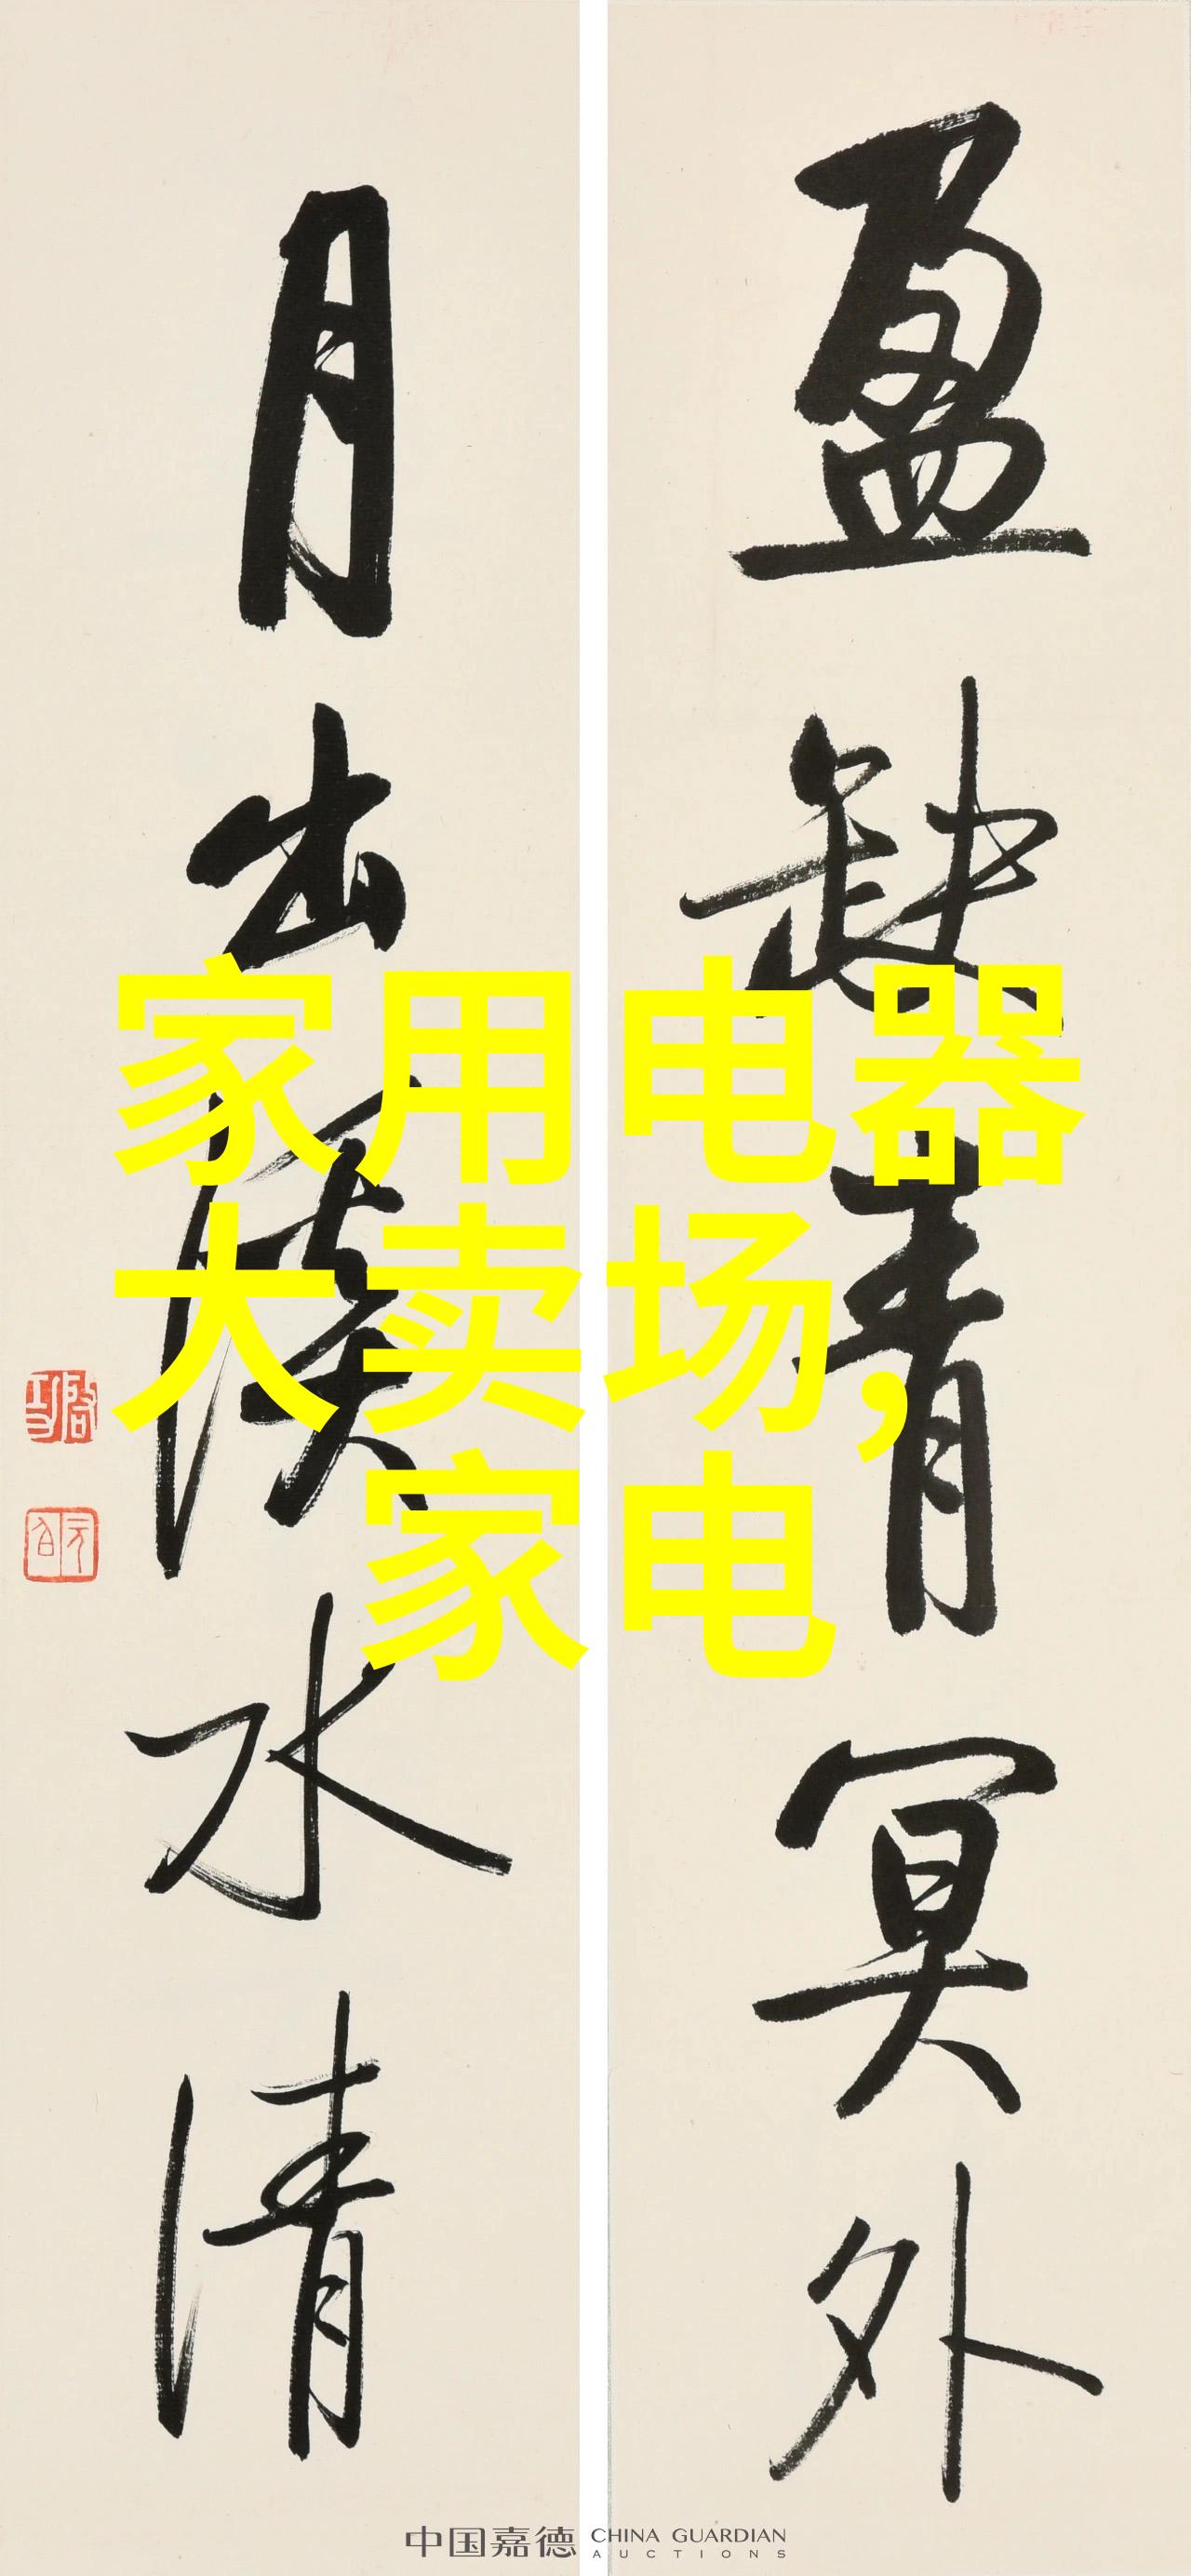 盈缺青冥外
月出湙水清
家用电器
大卖场,
家电
启功
元白
中国嘉德 CHINA GUARDIAN
AUCTIONS